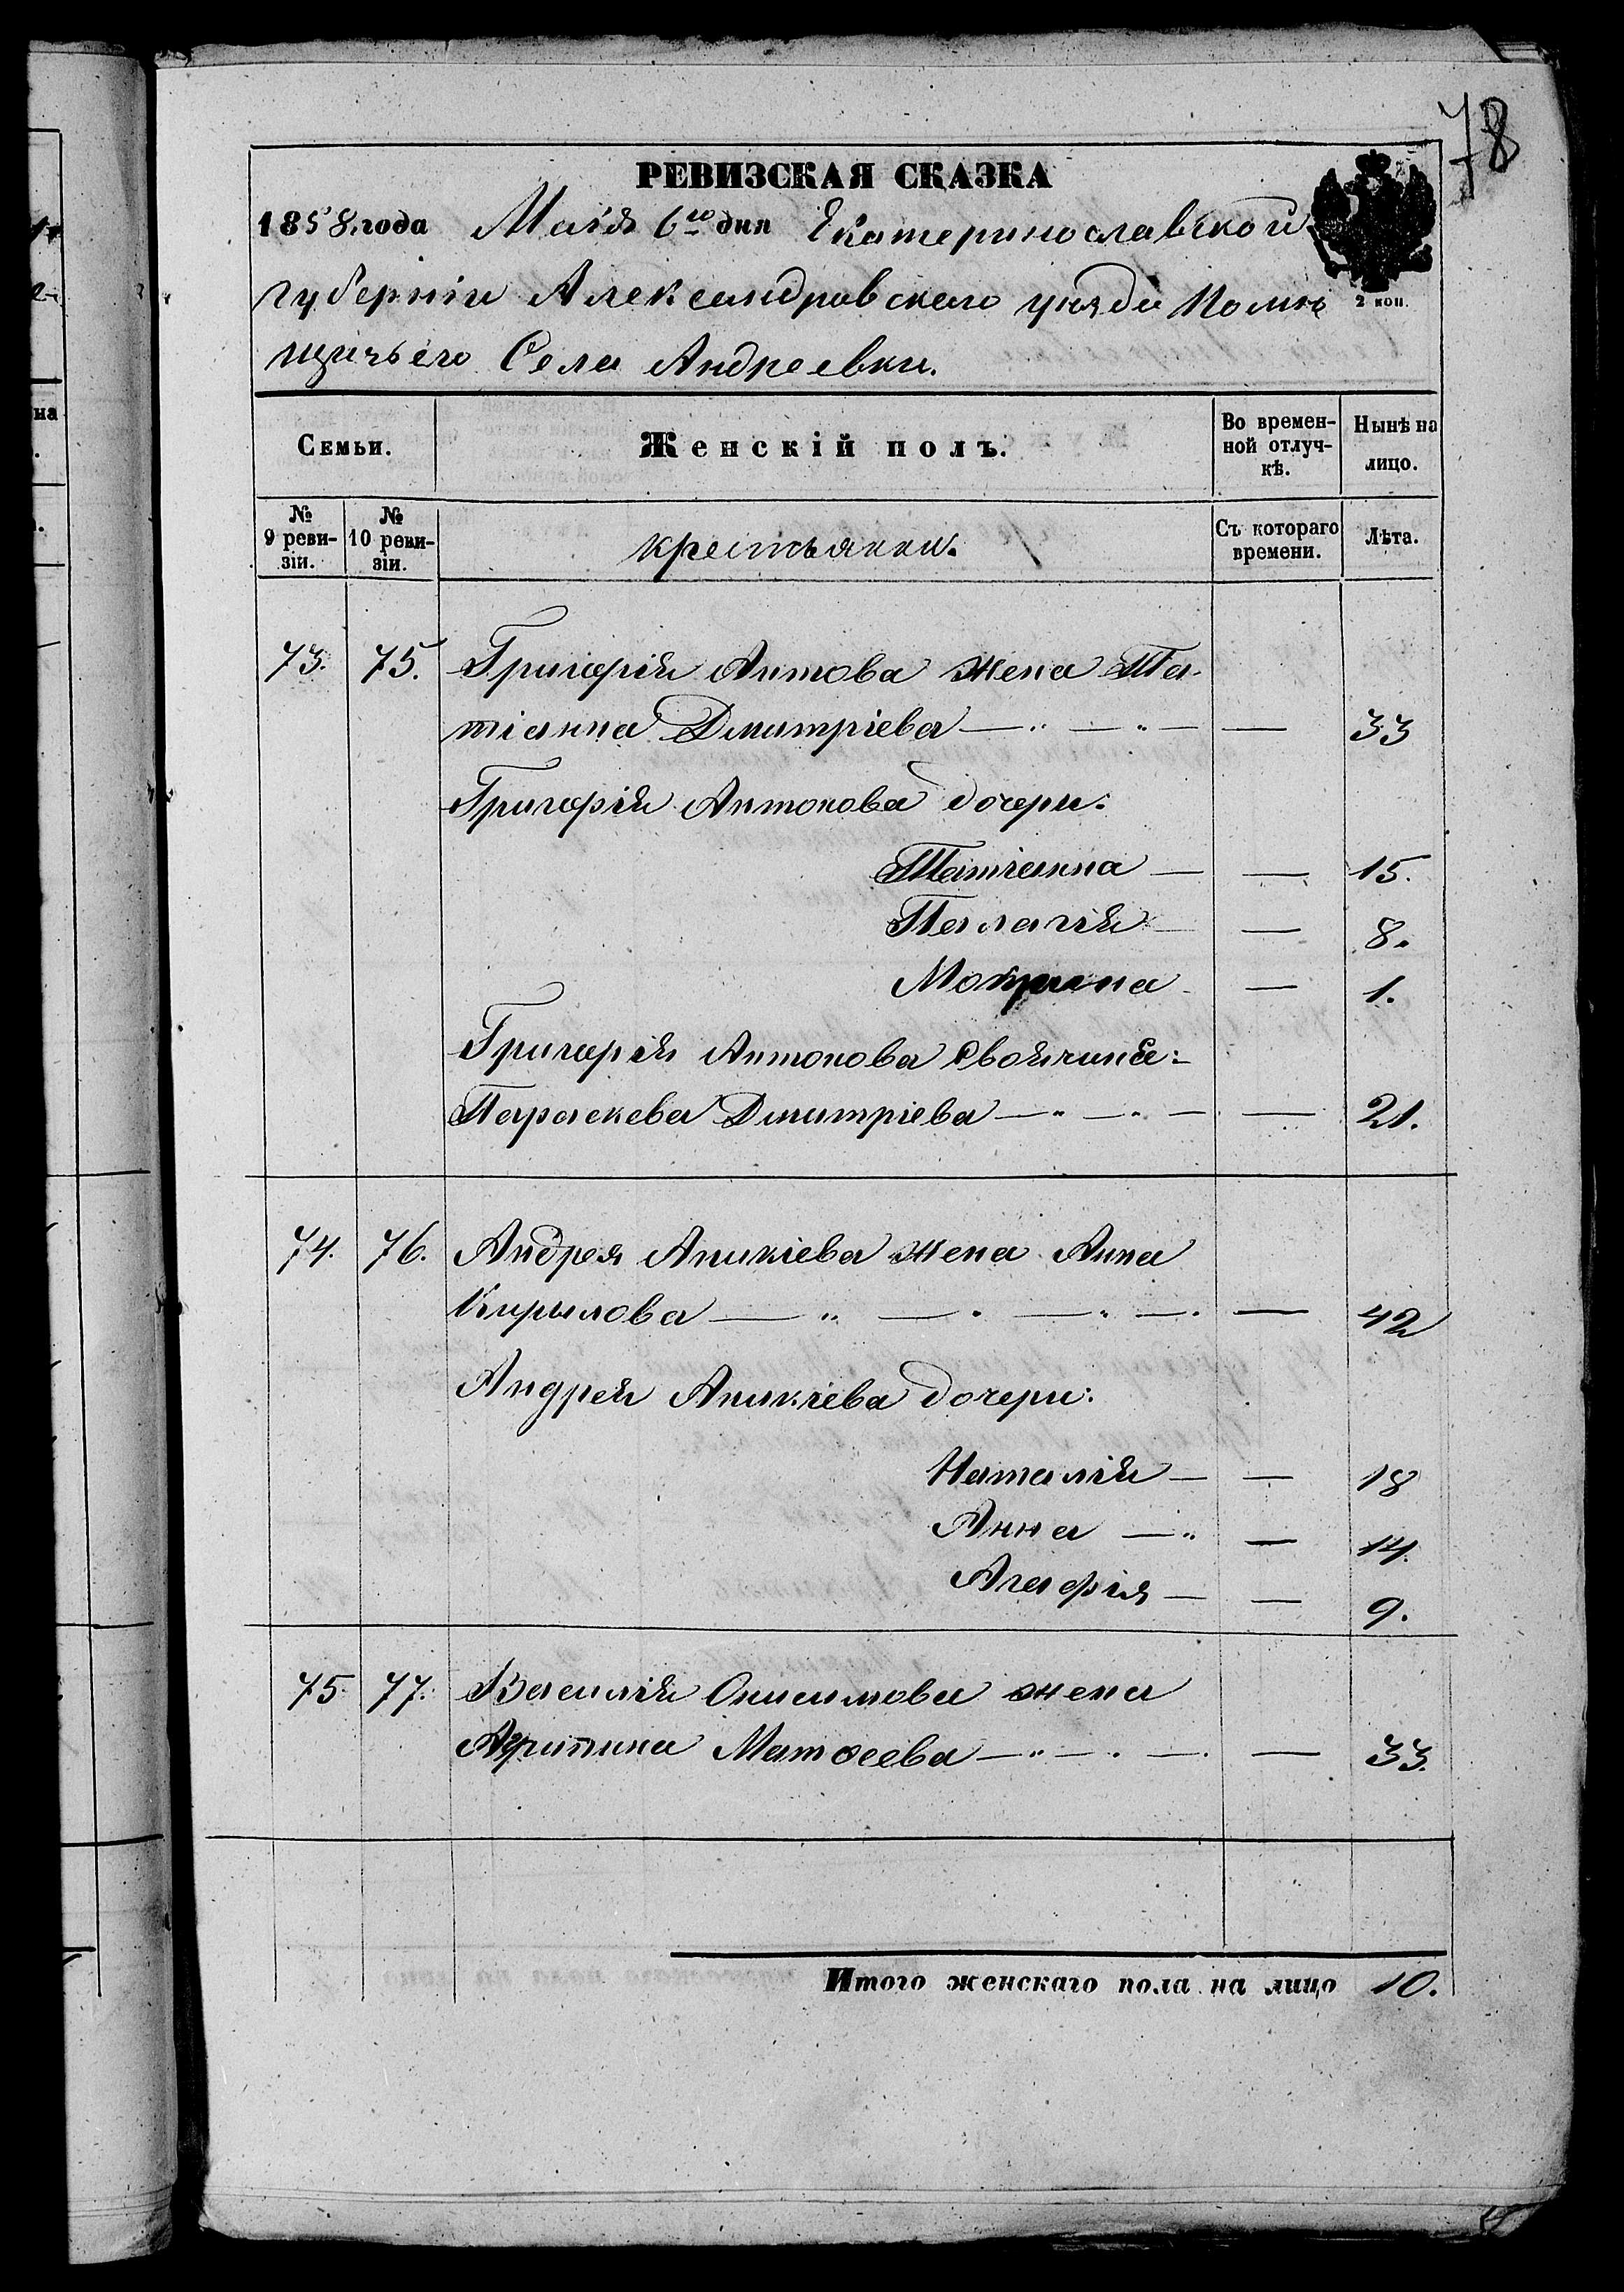 78
РЕВИЗСКАЯ СКАЗКА
1858 года Маія 6го дня Екатеринославской
губерніи Александровскаго уѣзда Помѣ
щичьего Села Андреевки.
2 коп.
Семьи.
Женскій полъ.
Во времен-
ной отлуч-
кѣ.
Нынѣ на
лицо.
№
9 реви-
зіи.
№
10 реви-
зіи.
крестьянки.
Съ котораго
времени.
Лѣта.
73. 75. Григорія Антова жена Та-
тіанна Дмитріева — — 33
Григорія Антонова дочери:
Татіанна — — 15.
Палагія — — 8.
Мотрина — — 1.
Григорія Антонова Своячина:
Параскева Дмитріева — — 21.
74. 76. Андрея Аникіева жена Анна
Кирылова — — 42
Андрея Аникіева дочери:
Наталія — — 18
Анна — — 14.
Агафія — — 9.
75 77. Василія Онисимова жена
Агрипина Матѳеева — — 33.
Итого женскаго пола на лицо 10.